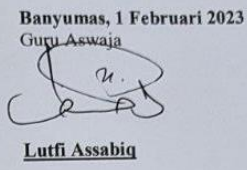 Banyumas, 1 Februari 2023
Guru Aswaja
Lutfi Assabiq